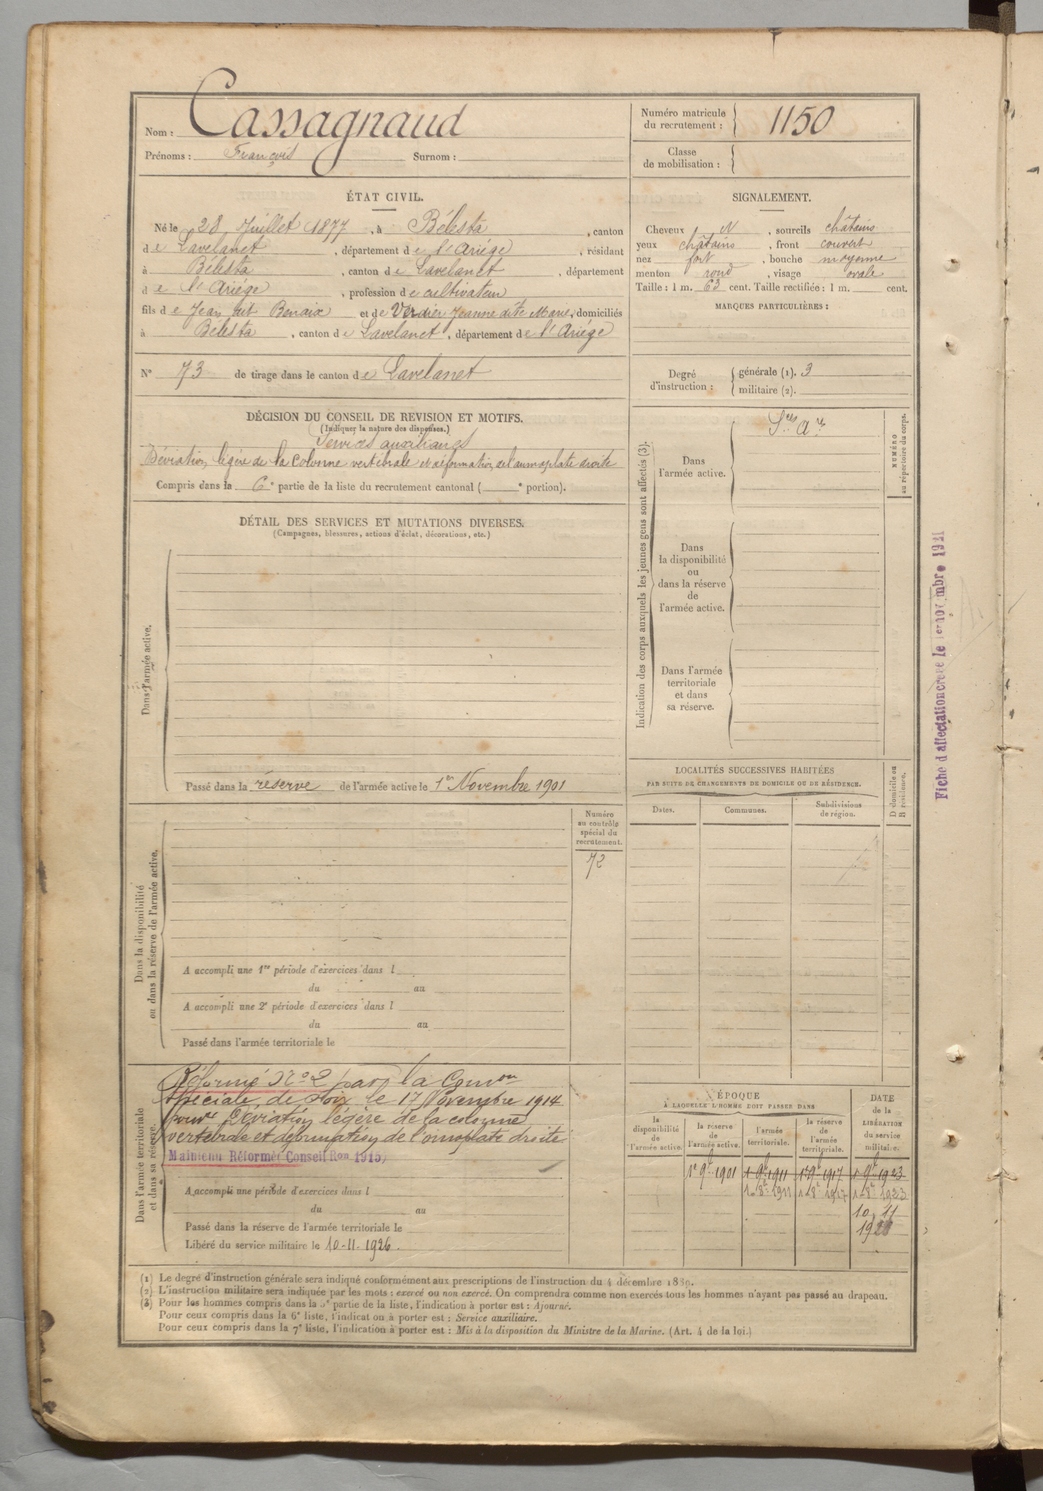 Nom : Cassagnaud
Prénoms : François Surnom :
Numéro matricule du recrutement : 1150
Classe de mobilisation :
ÉTAT CIVIL.
Né le 28 Juillet 1877, à Bélesta, canton
de Lavelanet, département de l'Ariège, résidant
à Bélesta, canton de Lavelanet, département
de l'Ariège, profession de cultivateur
fils de Jean dit Benaix et de Verdier Jeanne dite Marie, domiciliés
à Bélesta, canton de Lavelanet, département de l'Ariège
N° 73 de tirage dans le canton de Lavelanet
SIGNALEMENT.
Cheveux N, sourcils châtains
yeux châtains, front couvert
nez fort, bouche moyenne
menton rond, visage ovale
Taille : 1 m. 63 cent. Taille rectifiée : 1 m. cent.
MARQUES PARTICULIÈRES :
Degré d'instruction : générale (1). 3
militaire (2).
DÉCISION DU CONSEIL DE REVISION ET MOTIFS.
(Indiquer la nature des dispenses.)
Services auxiliaires
Déviation légère de la colonne vertébrale et déformation de l'omoplate droite
Compris dans la 6e partie de la liste du recrutement cantonal ( e portion).
DÉTAIL DES SERVICES ET MUTATIONS DIVERSES.
(Campagnes, blessures, actions d'éclat, décorations, etc.)
Dans l'armée active.
Passé dans la réserve de l'armée active le 1er Novembre 1901
Indication des corps auxquels les jeunes gens sont affectés (3).
Dans l'armée active.
Dans la disponibilité ou dans la réserve de l'armée active.
Dans l'armée territoriale et dans sa réserve.
NUMÉRO au répertoire du corps.
Fiche d'affectation créée le 1er novembre 1921
LOCALITÉS SUCCESSIVES HABITÉES
PAR SUITE DE CHANGEMENTS DE DOMICILE OU DE RÉSIDENCE.
Dates. Communes. Subdivisions de région.
D domicile ou R résidence.
Numéro au contrôle spécial du recrutement.
72
Dans la disponibilité ou dans la réserve de l'armée active.
A accompli une 1re période d'exercices dans l
du au
A accompli une 2e période d'exercices dans l
du au
Passé dans l'armée territoriale le
Dans l'armée territoriale et dans sa réserve.
Réformé N° 2 par la Comon
spéciale de Foix le 17 Novembre 1914
pour Déviation légère de la colonne
vertébrale et déformation de l'omoplate droite
Maintenu Réformé Conseil Ron 1915
A accompli une période d'exercices dans l
du au
Passé dans la réserve de l'armée territoriale le
Libéré du service militaire le 10-11-1926.
ÉPOQUE
À LAQUELLE L'HOMME DOIT PASSER DANS
la disponibilité de l'armée active.
la réserve de l'armée active.
l'armée territoriale.
la réserve de l'armée territoriale.
DATE de la LIBÉRATION du service militaire.
1er 9bre 1901 1 9bre 1911 1 9bre 1917 1 9bre 1923
10, 11
(1) Le degré d'instruction générale sera indiqué conformément aux prescriptions de l'instruction du 4 décembre 1889.
(2) L'instruction militaire sera indiquée par les mots : exercé ou non exercé. On comprendra comme non exercés tous les hommes n'ayant pas passé au drapeau.
(3) Pour les hommes compris dans la 5e partie de la liste, l'indication à porter est : Ajourné.
Pour ceux compris dans la 6e liste, l'indication à porter est : Service auxiliaire.
Pour ceux compris dans la 7e liste, l'indication à porter est : Mis à la disposition du Ministre de la Marine. (Art. 4 de la loi.)